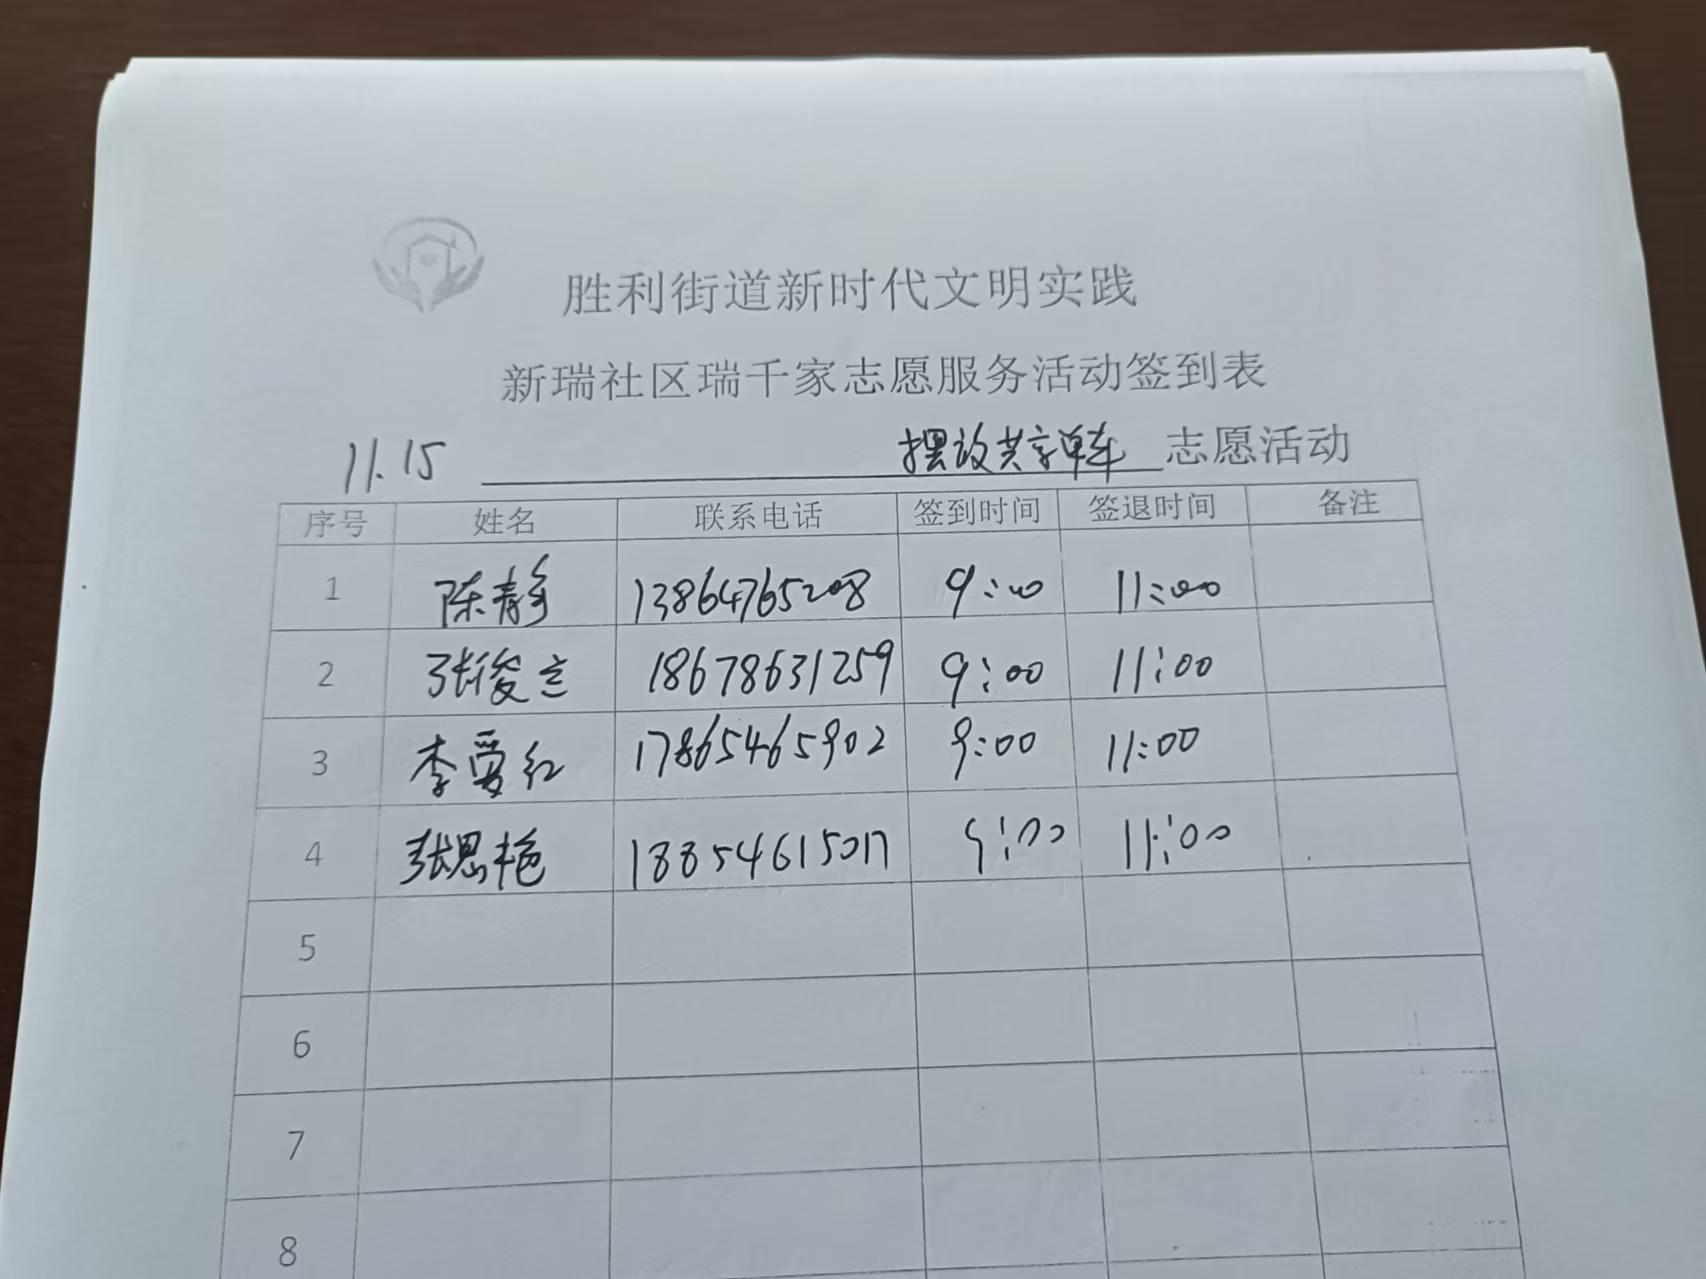 胜利街道新时代文明实践
新瑞社区瑞千家志愿服务活动签到表
11.15 摆放共享单车 志愿活动
序号 姓名 联系电话 签到时间 签退时间 备注
1 陈静 13864765208 9:00 11:00
2 张俊兰 18678631259 9:00 11:00
3 李爱红 17865465902 9:00 11:00
4 张思艳 18854615017 9:00 11:00
5
6
7
8